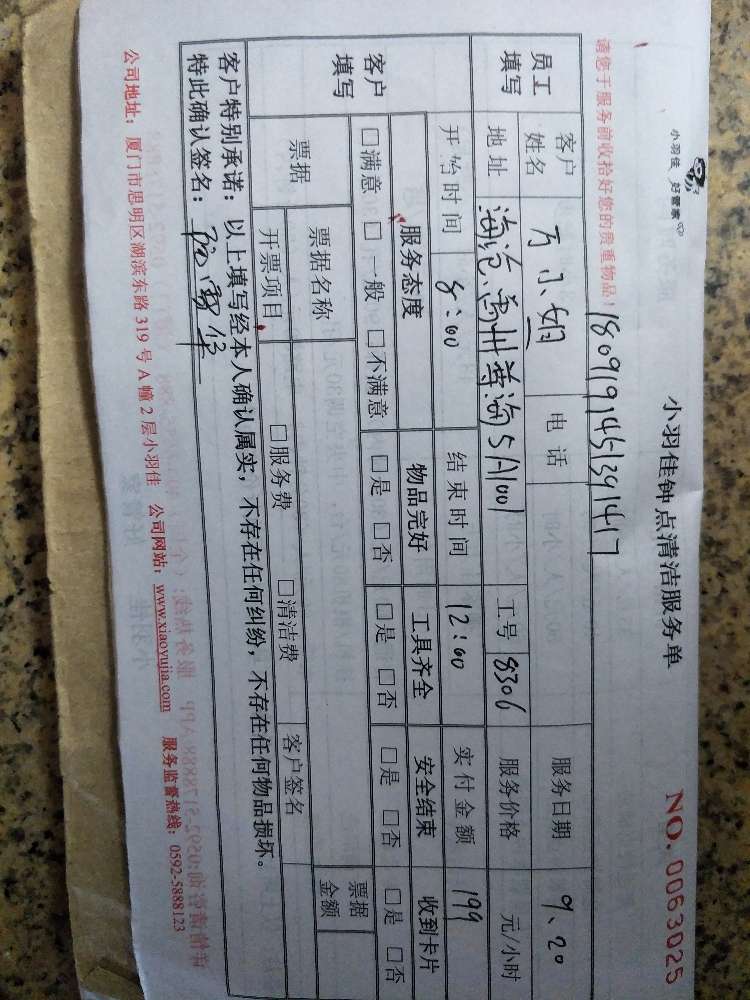 小羽佳 好管家
小羽佳钟点清洁服务单
NO. 0053025
请您于服务前收拾好您的贵重物品！
1809191451391417
员工填写
客户姓名 方小姐 电话 服务日期 9、20
地址 海沧.禹州尊海5A1001 工号 8306 服务价格 元/小时
开始时间 8:00 结束时间 12:00 实付金额 199
客户填写
服务态度 物品完好 工具齐全 安全结束 收到卡片
□满意 □一般 □不满意 □是 □否 □是 □否 □是 □否 □是 □否
票据 票据名称 票据金额
开票项目 □服务费 □清洁费 客户签名
客户特别承诺：以上填写经本人确认属实，不存在任何纠纷，不存在任何物品损坏。
特此确认签名：
公司地址：厦门市思明区湖滨东路319号A幢2层小羽佳 公司网站：www.xiaoyujia.com 服务监督热线：0592-5888123